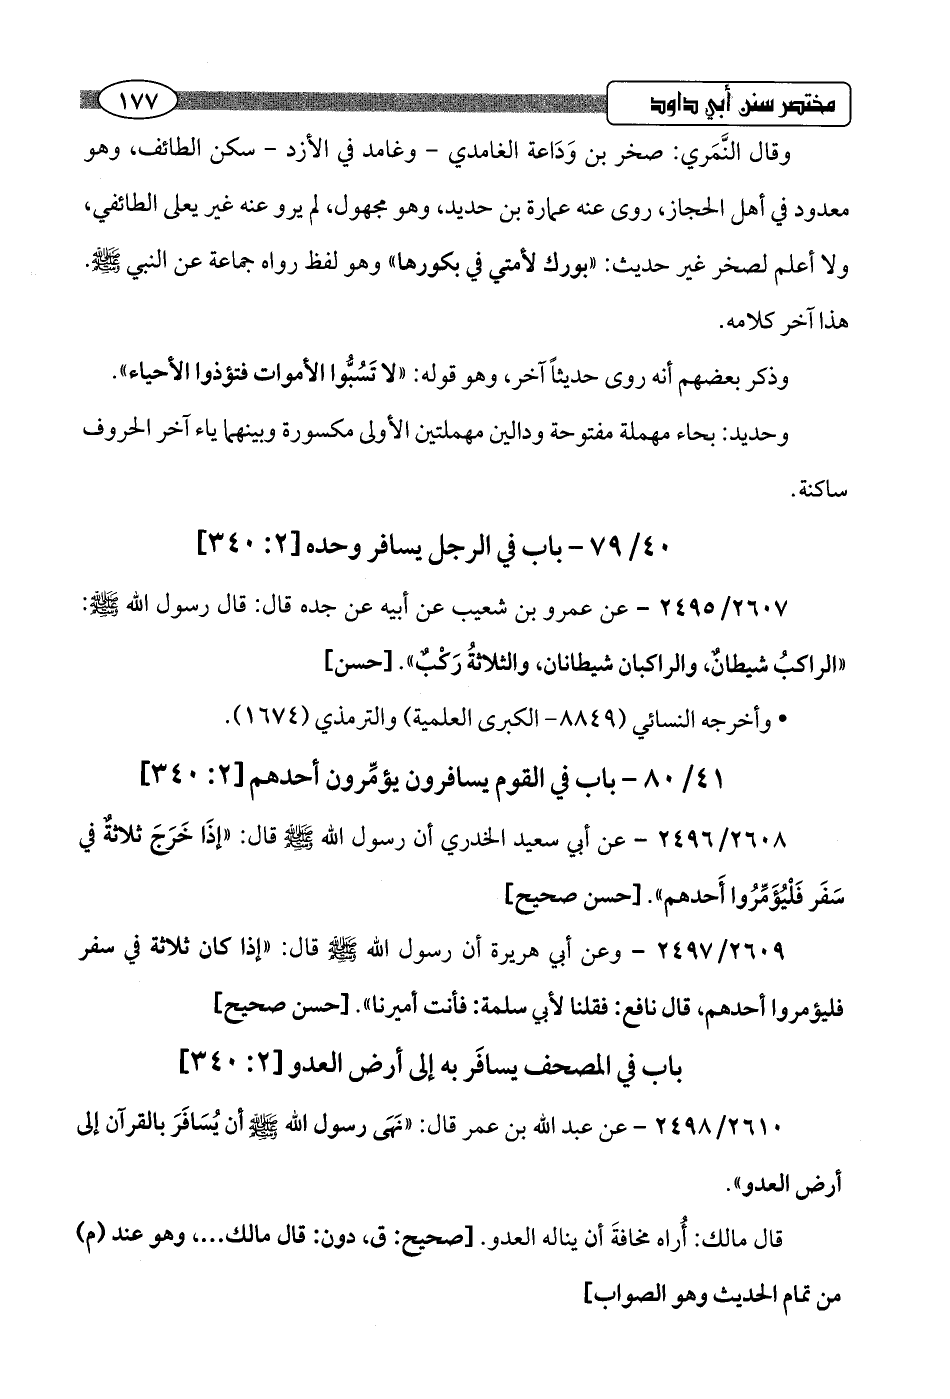 مختصر سنن أبي داود ١٧٧
وقال النَّمَري: صخر بن وَدَاعة الغامدي - وغامد في الأزد - سكن الطائف، وهو
معدود في أهل الحجاز، روى عنه عمارة بن حديد، وهو مجهول، لم يرو عنه غير يعلى الطائفي،
ولا أعلم لصخر غير حديث: «بورك لأمتي في بكورها» وهو لفظ رواه جماعة عن النبي ﷺ.
هذا آخر كلامه.
وذكر بعضهم أنه روى حديثاً آخر، وهو قوله: «لا تَسُبُّوا الأموات فتؤذوا الأحياء».
وحديد: بحاء مهملة مفتوحة ودالين مهملتين الأولى مكسورة وبينهما ياء آخر الحروف
ساكنة.
٧٩/٤٠ - باب في الرجل يسافر وحده [٢: ٣٤٠]
٢٤٩٥/٢٦٠٧ - عن عمرو بن شعيب عن أبيه عن جده قال: قال رسول الله ﷺ:
«الراكبُ شيطانٌ، والراكبان شيطانان، والثلاثةُ رَكْبٌ». [حسن]
• وأخرجه النسائي (٨٨٤٩- الكبرى العلمية) والترمذي (١٦٧٤).
٨٠/٤١ - باب في القوم يسافرون يؤمِّرون أحدهم [٢: ٣٤٠]
٢٤٩٦/٢٦٠٨ - عن أبي سعيد الخدري أن رسول الله ﷺ قال: «إذَا خَرَجَ ثلاثةٌ في
سَفَر فَلْيُؤَمِّرُوا أَحدهم». [حسن صحيح]
٢٤٩٧/٢٦٠٩ - وعن أبي هريرة أن رسول الله ﷺ قال: «إذا كان ثلاثة في سفر
فليؤمروا أحدهم، قال نافع: فقلنا لأبي سلمة: فأنت أميرنا». [حسن صحيح]
باب في المصحف يسافَر به إلى أرض العدو [٢: ٣٤٠]
٢٤٩٨/٢٦١٠ - عن عبد الله بن عمر قال: «نَهَى رسول الله ﷺ أن يُسَافَرَ بالقرآن إلى
أرض العدو».
قال مالك: أُراه مخافةَ أن يناله العدو. [صحيح: ق، دون: قال مالك...، وهو عند (م)
من تمام الحديث وهو الصواب]